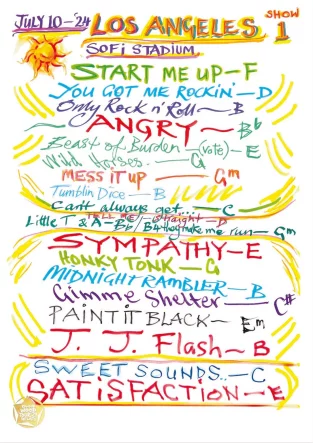 JULY 10-'24 LOS ANGELES SHOW 1
SOFI STADIUM
START ME UP-F
YOU GOT ME ROCKIN'-D
Only Rock n' Roll-B
ANGRY-Bb
Beast of Burden-(Vote)-E
Wild Horses.-G
MESS IT UP-Gm
Tumblin Dice-B
Can't always get...-C
TELL ME straight-D
Little T & A-Bb/-B4 they make me run-Gm
SYMPATHY-E
HONKY TONK-G
MIDNIGHT RAMBLER-B
Gimme Shelter-C#
PAINT IT BLACK-Em
J. J. Flash-B
SWEET SOUNDS..-C
SATISFACTION-E